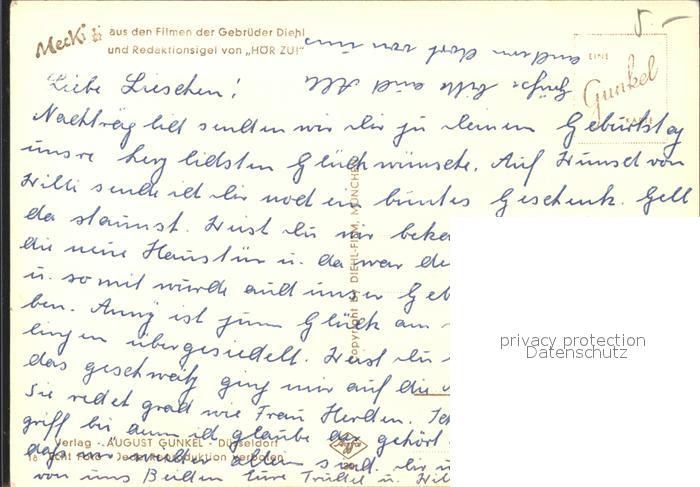 Mecki aus den Filmen der Gebrüder Diehl
und Redaktionsigel von „HÖR ZU!"
5.-
EINE
Gunkel
KARTE
Grüße bitte auch Alle
andern dort von uns
Liebe Lieschen!
Nachträglich senden wir dir zu deinem Geburtstag
unsre herzlichsten Glückwünsche. Auf Wunsch von
Willi sende ich dir noch ein buntes Geschenk. Gell
da staunst. Weist du wir beka
die neue Haustür u. da war de
u. somit wurde auch unser Geb
ben. Anny ist zum Glück am
lingen übergesiedelt. Weist du
das geschwätz ging mir auf die
Sie redet grad wie Frau Herden. Ich
griff bin denn ich glaube das gehört
daß wir wieder allein sind.
von uns Beiden Eure Trudel u. Willi
Copyright by DIEHL-FILM, MÜNCHEN
Verlag - AUGUST GUNKEL - Düsseldorf
16 Echt Foto - Jede Reproduktion verboten
Agfa
privacy protection
Datenschutz